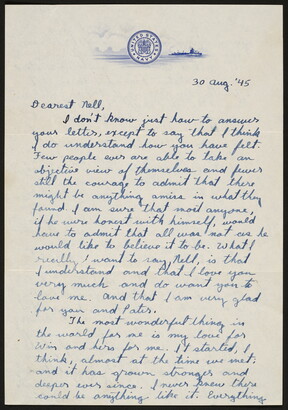 UNITED STATES NAVY
30 Aug. '45
Dearest Nell,
I don't know just how to answer
your letter, except to say that I think
I do understand how you have felt.
Few people ever are able to take an
objective view of themselves and fewer
still the courage to admit that there
might be anything amiss in what they
found. I am sure that most anyone,
if he were honest with himself, would
have to admit that all was not as he
would like to believe it to be. What I
really want to say, Nell, is that
I understand and that I love you
very much and do want you to
love me. And that I am very glad
for you and
The most wonderful thing in
the world for me is my love for
Win and hers for me. It started, I
think, almost at the time we met;
and it has grown stronger and
deeper ever since. I never knew there
could be anything like it. Everything